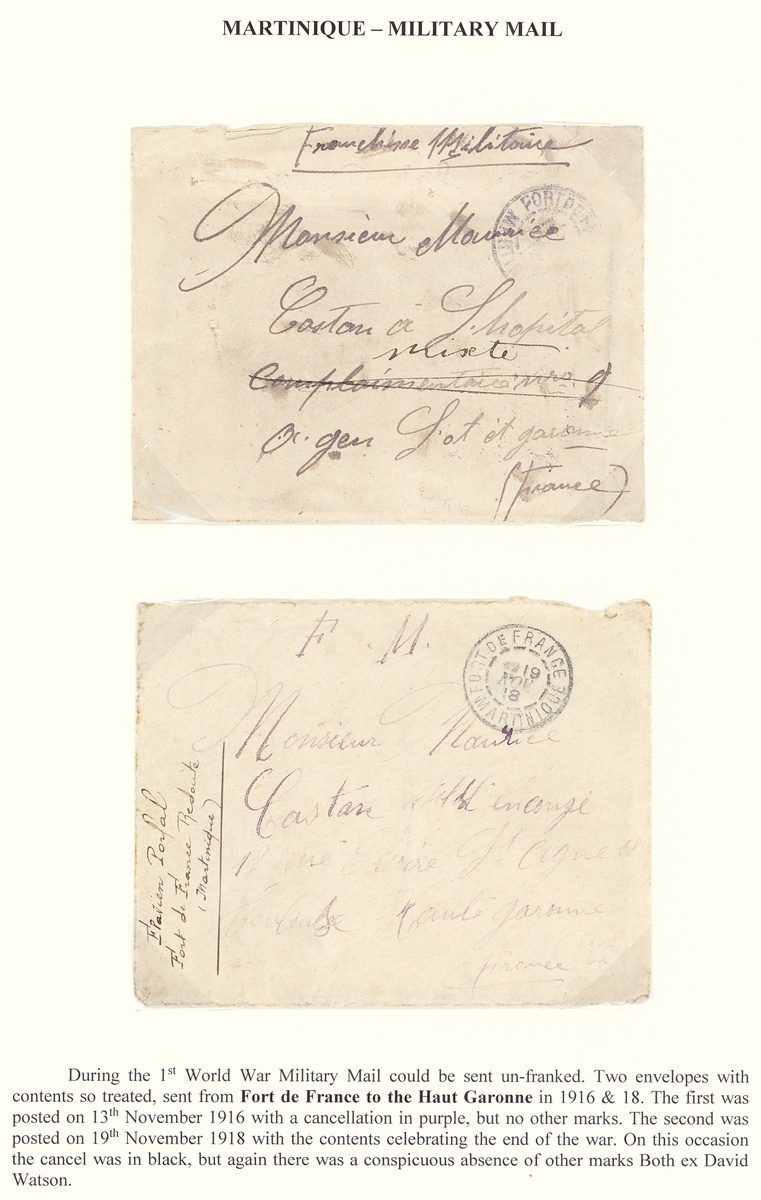 MARTINIQUE – MILITARY MAIL
Franchise Militaire
FORT DE F
Monsieur Maurice
Castan à L'hopital
mixte
Complaimentaire Nro 9
a gen Lot et garonne
(France)
F. M.
FORT DE FRANCE
19
NOV
18
MARTINIQUE
Monsieur Maurice
Castan en congé
St agne
Toulouse Haute garonne
france
Flavien Porfal
Fort de France Redoute
(Martinique)
During the 1st World War Military Mail could be sent un-franked. Two envelopes with
contents so treated, sent from Fort de France to the Haut Garonne in 1916 & 18. The first was
posted on 13th November 1916 with a cancellation in purple, but no other marks. The second was
posted on 19th November 1918 with the contents celebrating the end of the war. On this occasion
the cancel was in black, but again there was a conspicuous absence of other marks Both ex David
Watson.